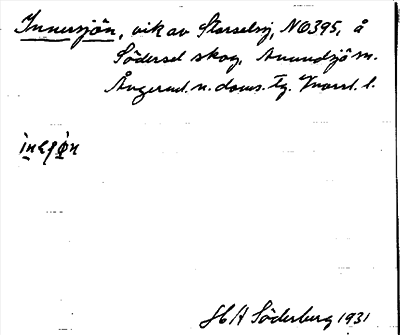 Innersjön, vik av Storselsj, N6395, å
Södersel skog, Anundsjö sn.
Ångerml. n. doms. tg. Vnorrl. l.
H A Söderberg 1931